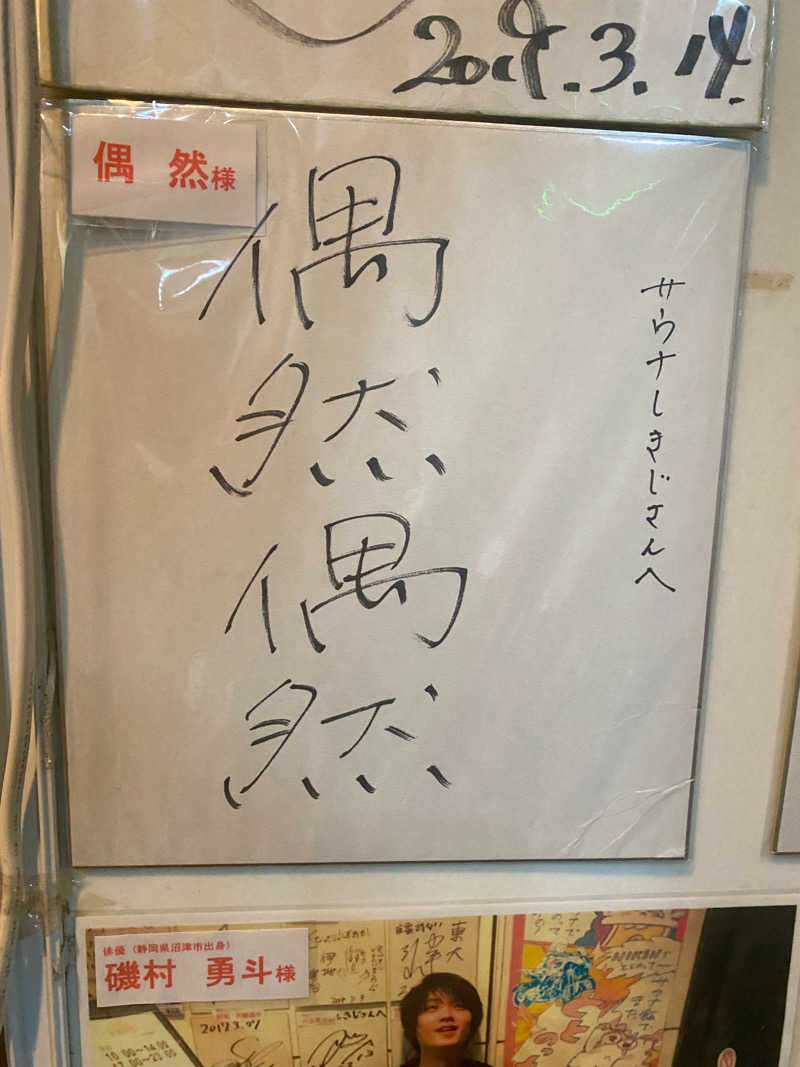 2019.3.14.
偶 然様
サウナしきじさんへ
偶然
偶然
俳優（静岡県沼津市出身）
磯村 勇斗様
東大
しきじさんへ
10:00~14:00
17:00~23:00